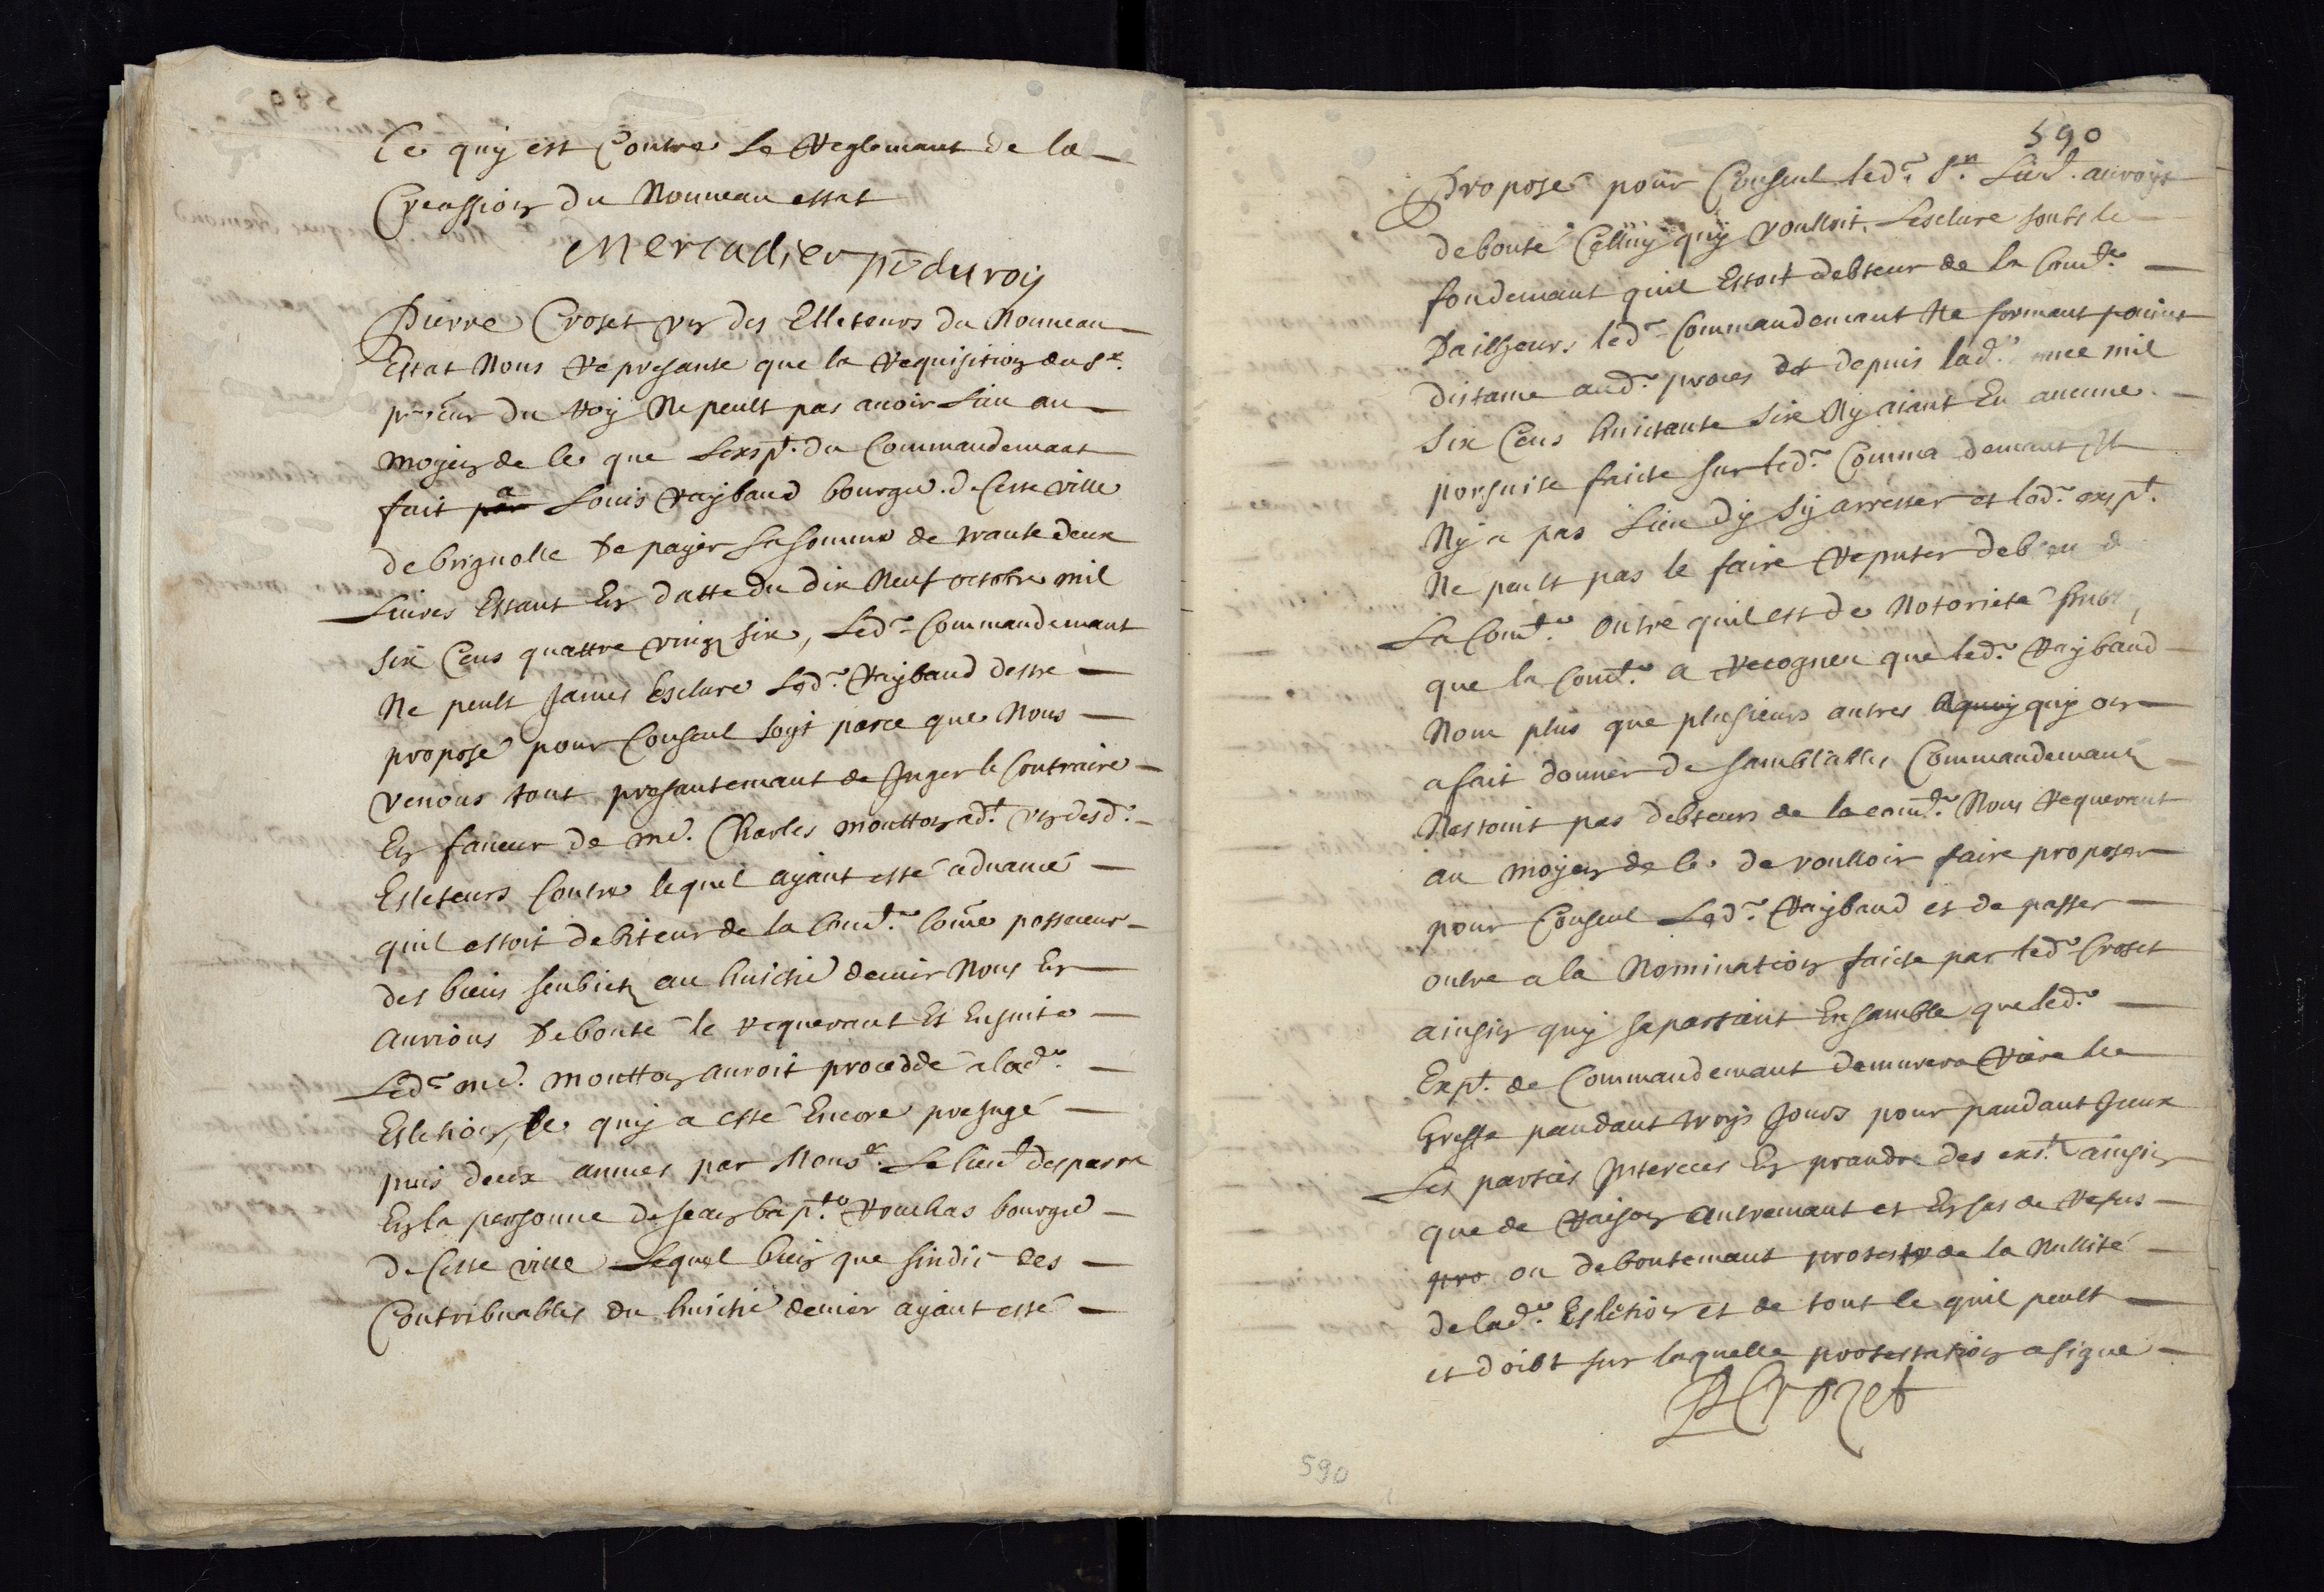 Ce quy est Contre Le Reglemant de la
Creassion du Nouveau estat
Mercadier pr du roy
Pierre Croset un des Elleteurs du Nouveau
Estat Nous Represante que la Requisition du Sr.
proceur du Roy Ne peult pas avoir Lieu au
moyen de Ce que Lexpt. du Commandemant
fait a Louis Raybaud bourgs. de Cette ville
de brignolle De payer La somme de trante deux
Livres Estant En datte du dix Neuf octobre mil
Six Cens quattre vingz six, Led. Commandemant
Ne peult Jamès Esclure Led. Raybaud destre
propose pour Consul soyt parce que Nous
venons tout presantemant de Juger le Contraire
En faveur de me. Charles moutton adt. un desd.
Elleteurs Contre lequel ayant esté advancé
quil estoit debiteur de la Comté. Come possesseur
des biens seubietz au huictie denier Nous En
Aurions Debouté le requerant Et Ensuite
Led. me. moutton auroit procedde a lad.
Elletion, Ce quy a esté Encore presugé
puis deux annees par Monsr. Le lieut desparra
En la personne de Jean bapte. Rouchas bourgs
de Cette ville Lequel bien que sindic des
Contribuables du huictie denier ayant esté
590
Propose pour Consul led. Sr. Lieut. auroyt
debouté Celluy quy voulloit Lesclure soubz le
fondemant quil Estoit debteur de la Comté.
Dailheurs led. Commandemant Ne formant point
distame aud. proces depuis lad. mil
Six Cens huictante six Ny aiant Eu aucune
porsuite faicte sur led. Comma demant Il
Ny a pas Lieu dy sy arrester et lad. expt.
Ne peult pas le faire Reputer
La Comté. outre quil est de Notorieté
que la Comté. a recogneu que led. Raybaud
Nom plus que plusieurs autres quy on
a fait donner de samblables Commandemantz
Nestoint pas debteurs de la comté. Nous Requerant
au moyen de Ce. de voulloir faire proposer
pour Consul Led. Raybaud et de passer
outre a la Nomination faicte par led. Croset
ainsin quy sapartient Ensamble que led.
Expt. de Commandemant demurera Riere le
Greffe pandant troys Jours pour pandant Jceux
Les parties Interecees En prandre des ext. ainsin
que de Raison autremant et En Cas de Refus
pro ou deboutemant proteste de la Nullité
de lad. Elletion et de tout Ce quil peult
et doibt sur laquelle protestation a signé
P Crozet
590